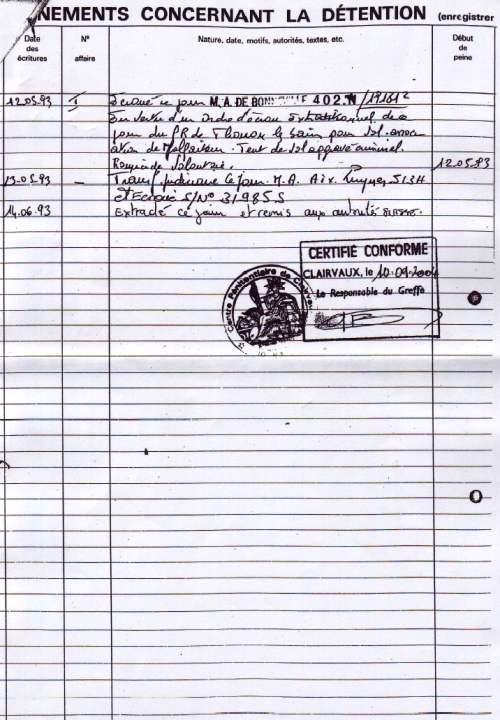 NEMENTS CONCERNANT LA DÉTENTION (enregistrer
Date des écritures
N° affaire
Nature, date, motifs, autorités, textes, etc.
Début de peine
12.05.93 I Ecroué ce jour M. A. DE BON 402.N/19161
En vertu d'un Ordre d'écrou extraditionnel de ce
jour du PR de Thonon les bains pour Vol. assoc
iation de Malfaiteur. Tent de Vol aggravé criminel.
12.05.93
13.05.93 _ Transf judiciaire ce jour. M.A. Aix. 513H
et Ecroué S/N° 31985S
14.06.93 Extradé ce jour et remis aux autorités suisse.
CERTIFIÉ CONFORME
CLAIRVAUX, le 10.09.200
Le Responsable du Greffe
Centre Pénitentiaire de Clairvaux